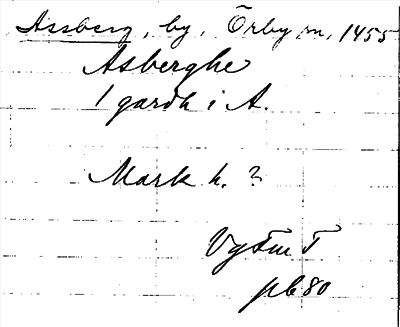 Assberg, by, Örby sn, 1455
Asberghe
1 gardh i A.
Mark h. ?
VgFm T
pb 80